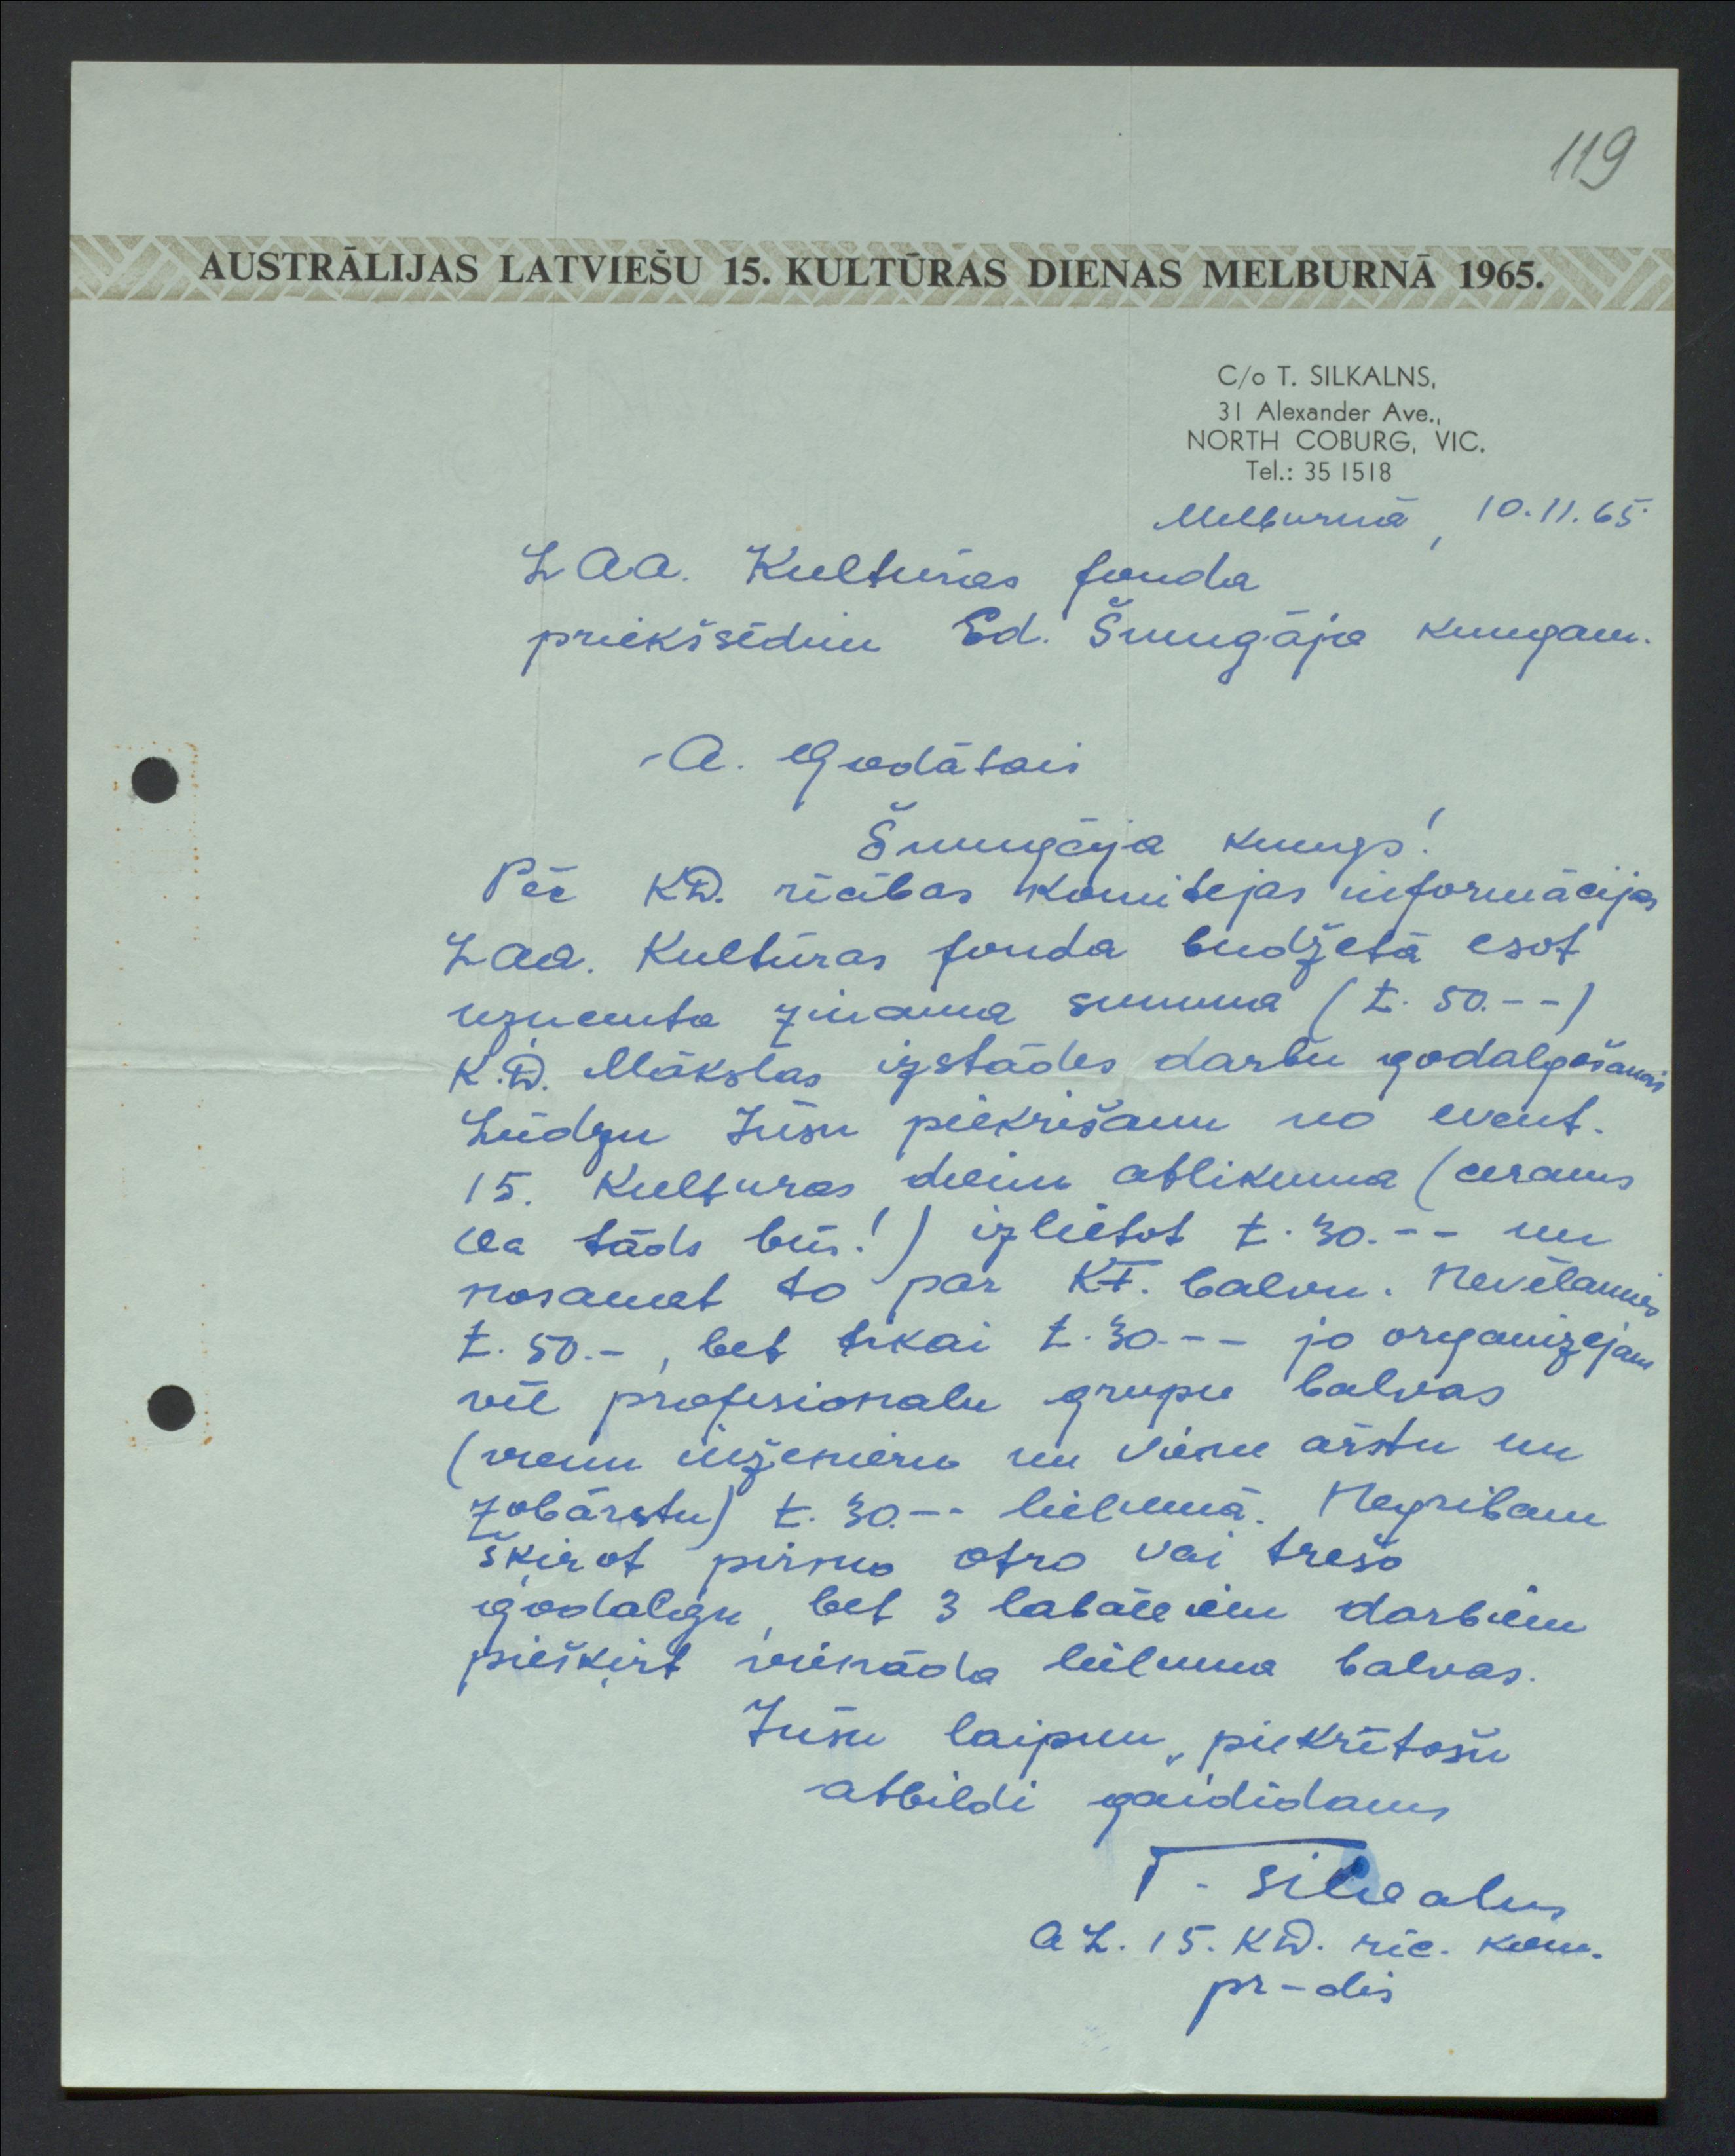 119
AUSTRĀLIJAS LATVIEŠU 15. KULTŪRAS DIENAS MELBURNĀ 1965.
C/o T. SILKALNS,
31 Alexander Ave.,
NORTH COBURG, VIC.
Tel.: 35 1518
Melburnā, 10.11.65
LAA. Kultūras fonda
priekšsēdim Ed. Smugāja kungam.
A. Godātais
Smugāja kungs!
Pēc KD. rīcības komitejas informācijas
LAA. Kultūras fonda budžetā esot
uzņemta zināma summa (£. 50.--)
K.D. Mākslas izstādes darbu godalgošanai
Lūdzu Jūsu piekrišanu no event.
15. Kulturas dienu atlikuma (ceram
ka tāds būs!) izlietot £. 30.-- un
nosaucot to par KF. balvu. Nevēlamies
£. 50.-, bet tikai £. 30.-- jo organizējam
vēl profesionalu grupu balvas
(vienu inženieru un vienu ārstu un
zobārstu) £. 30.-- lielumā. Negribam
šķirot pirmo otro vai trešo
godalgu, bet 3 labākiem darbiem
piešķirt vienāda lieluma balvas.
Jūsu laipnu, piekrītošu
atbildi gaidīdams
T. Silkalns
AL. 15. KD. rīc. kom.
pr-dis